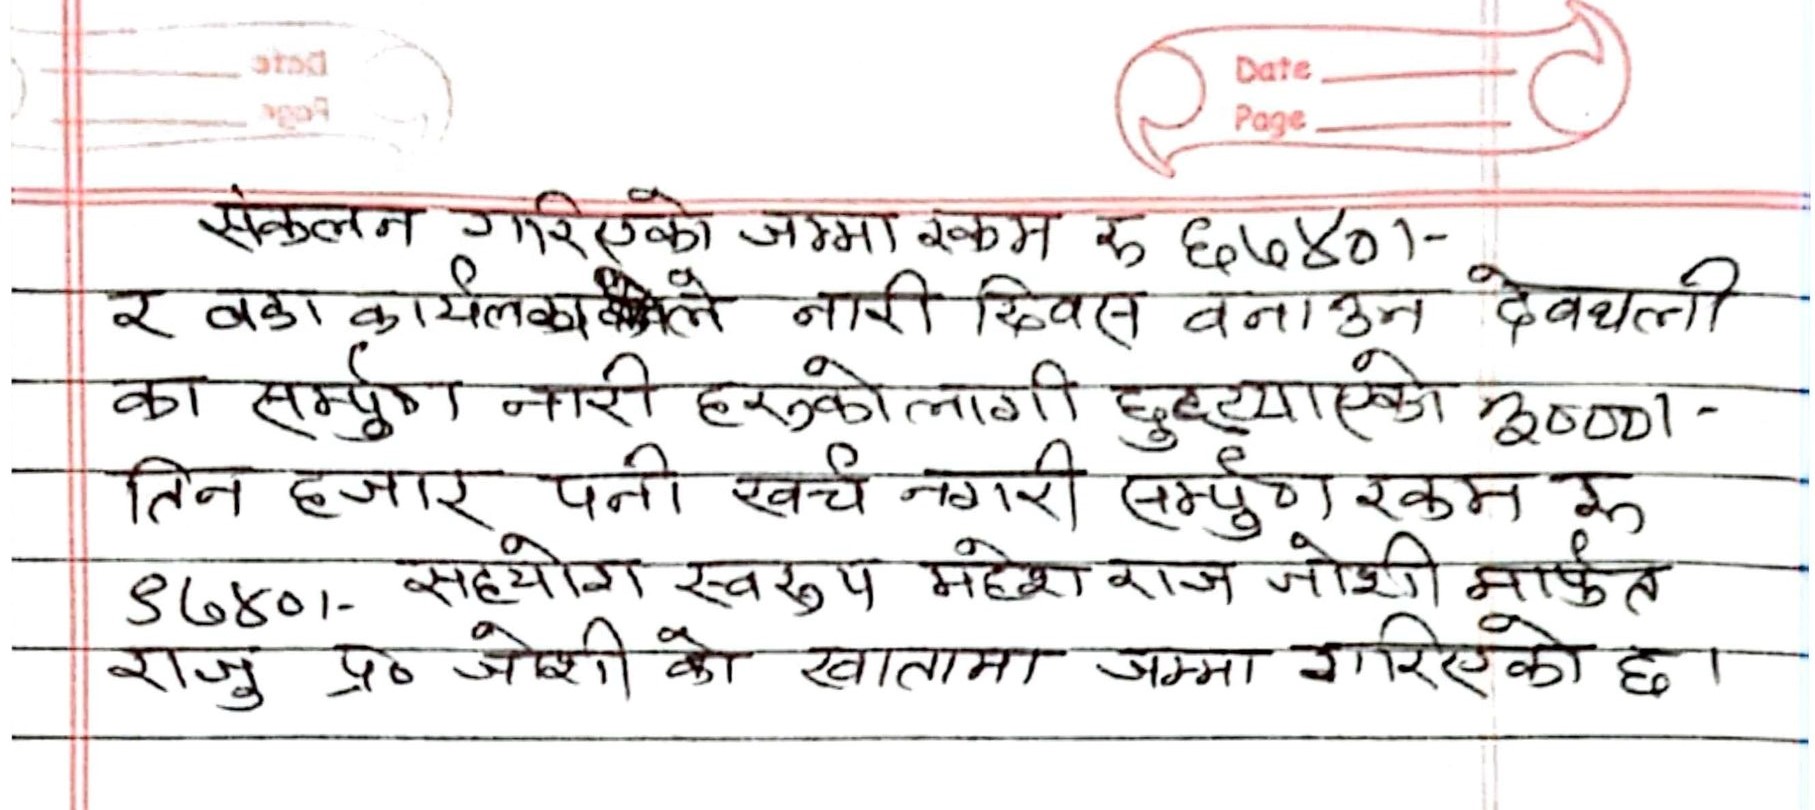 Date
Page
संकलन गरिएको जम्मा रकम रु ६७४०।-
र वडा कार्यलयले नारी दिवस वनाउन देवथली
का सर्म्पुण नारी हरुको लागी छुट्टयाएको ३०००।-
तिन हजार पनी खर्च नगरी सर्म्पुण रकम रु
९७४०।- सहयोग स्वरुप महेश राज जोशी मार्फत
राजु प्र० जोशी को खातामा जम्मा गरिएको छ।